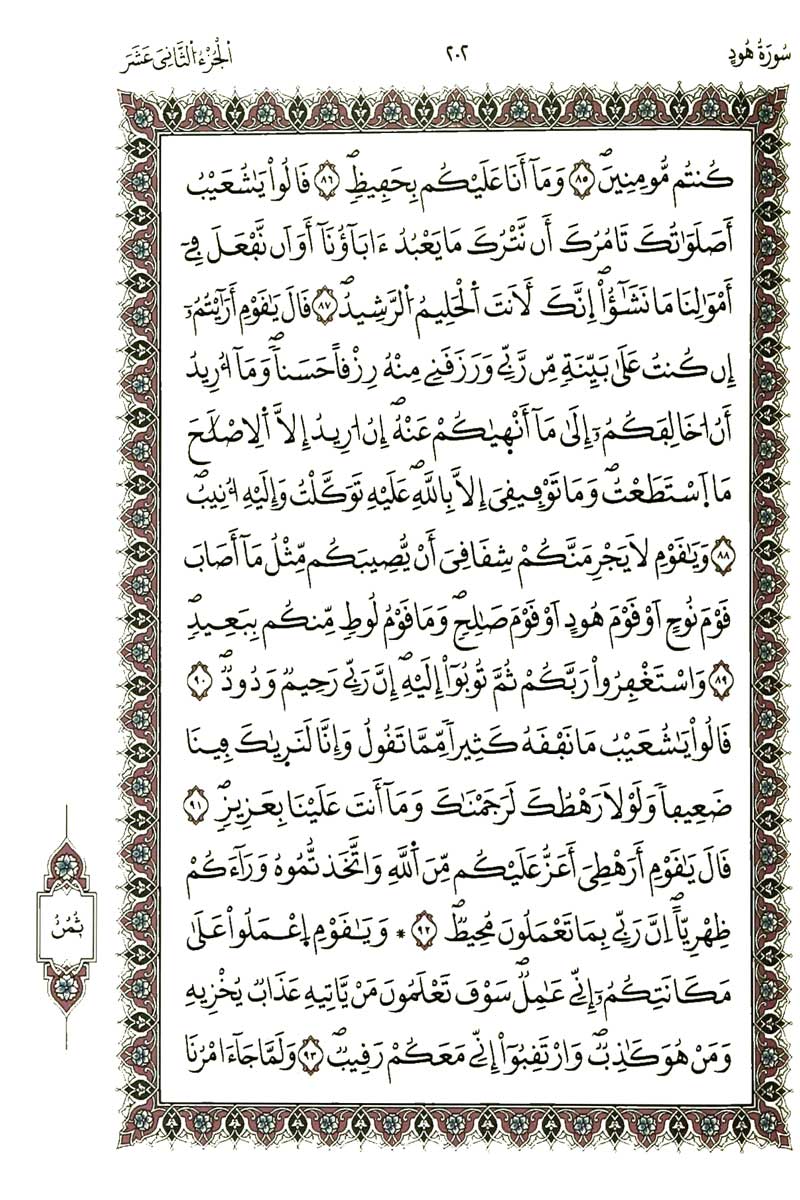 سُورَةُ هُودٍ
٢٠٢
اَلْجُزْءُ الثَّانِيَ عَشَرَ
كُنتُم مُّومِنِينَۖ ٨٥ وَمَآ أَنَا عَلَيْكُم بِحَفِيظٖۖ ٨٦ قَالُواْ يَٰشُعَيْبُ
أَصَلَوَٰتُكَ تَامُرُكَ أَن نَّتْرُكَ مَا يَعْبُدُ ءَابَآؤُنَآ أَوَ اَن نَّفْعَلَ فِےٓ
أَمْوَٰلِنَا مَا نَشَٰٓؤُاْۖ اِنَّكَ لَأَنتَ اَ۬لْحَلِيمُ اُ۬لرَّشِيدُۖ ٨٧ قَالَ يَٰقَوْمِ أَرَٰٓيْتُمُۥٓ
إِن كُنتُ عَلَىٰ بَيِّنَةٖ مِّن رَّبِّے وَرَزَقَنِے مِنْهُ رِزْقاً حَسَناٗۖ وَمَآ أُرِيدُ
أَنُ ا۟خَالِفَكُمُۥٓ إِلَىٰ مَآ أَنْهَيٰكُمْ عَنْهُۖ إِنُ ا۟رِيدُ إِلَّا اَ۬لِاصْلَٰحَ
مَا اَ۪سْتَطَعْتُۖ وَمَا تَوْفِيقِيَ إِلَّا بِاللَّهِۖ عَلَيْهِ تَوَكَّلْتُ وَإِلَيْهِ أُنِيبُۖ
٨٨ وَيَٰقَوْمِ لَا يَجْرِمَنَّكُمْ شِقَاقِيَ أَنْ يُّصِيبَكُم مِّثْلُ مَآ أَصَابَ
قَوْمَ نُوحٍ اَوْ قَوْمَ هُودٍ اَوْ قَوْمَ صَٰلِحٖۖ وَمَا قَوْمُ لُوطٖ مِّنكُم بِبَعِيدٖۖ
٨٩ وَاسْتَغْفِرُواْ رَبَّكُمْ ثُمَّ تُوبُوٓاْ إِلَيْهِۖ إِنَّ رَبِّے رَحِيمٞ وَدُودٞۖ ٩٠
قَالُواْ يَٰشُعَيْبُ مَا نَفْقَهُ كَثِيراٗ مِّمَّا تَقُولُ وَإِنَّا لَنَرَيٰكَ فِينَا
ضَعِيفاٗ وَلَوْلَا رَهْطُكَ لَرَجَمْنَٰكَ وَمَآ أَنتَ عَلَيْنَا بِعَزِيزٖۖ ٩١
قَالَ يَٰقَوْمِ أَرَهْطِيَ أَعَزُّ عَلَيْكُم مِّنَ اَ۬للَّهِ وَاتَّخَذتُّمُوهُ وَرَآءَكُمْ
ظِهْرِيّاًۖ اِنَّ رَبِّے بِمَا تَعْمَلُونَ مُحِيطٞۖ ٩٢ * وَيَٰقَوْمِ اِ۪عْمَلُواْ عَلَىٰ
مَكَانَتِكُمُۥٓ إِنِّے عَٰمِلٞۖ سَوْفَ تَعْلَمُونَ مَنْ يَّاتِيهِ عَذَابٞ يُخْزِيهِ
وَمَنْ هُوَ كَٰذِبٞۖ وَارْتَقِبُوٓاْ إِنِّے مَعَكُمْ رَقِيبٞۖ ٩٣ وَلَمَّا جَآءَ امْرُنَا
ثُمُنُ